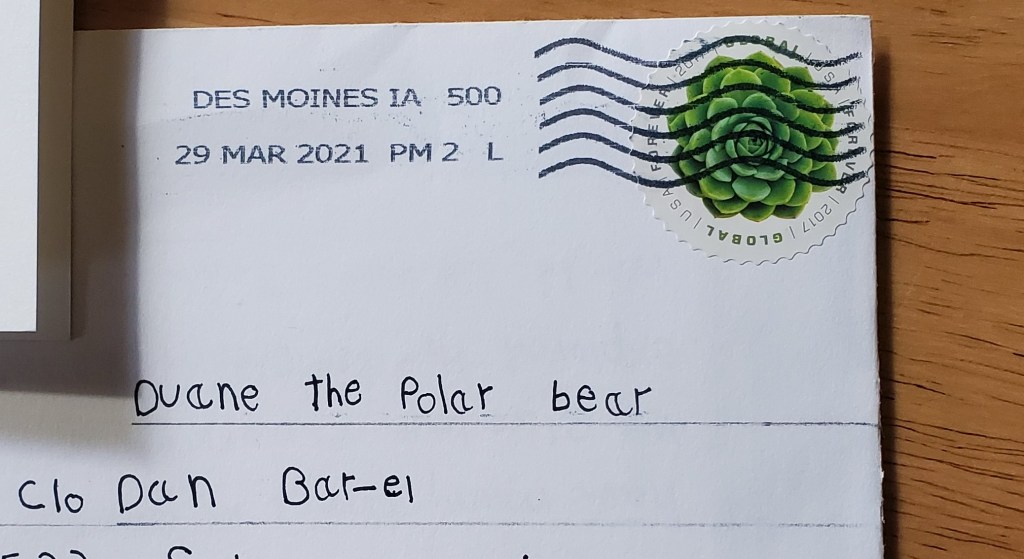 DES MOINES IA 500
29 MAR 2021 PM 2 L
GLOBAL | USA | FOREVER | 2017 | GLOBAL | USA | FOREVER | 2017
Duane the Polar bear
c/o Dan Bar-el